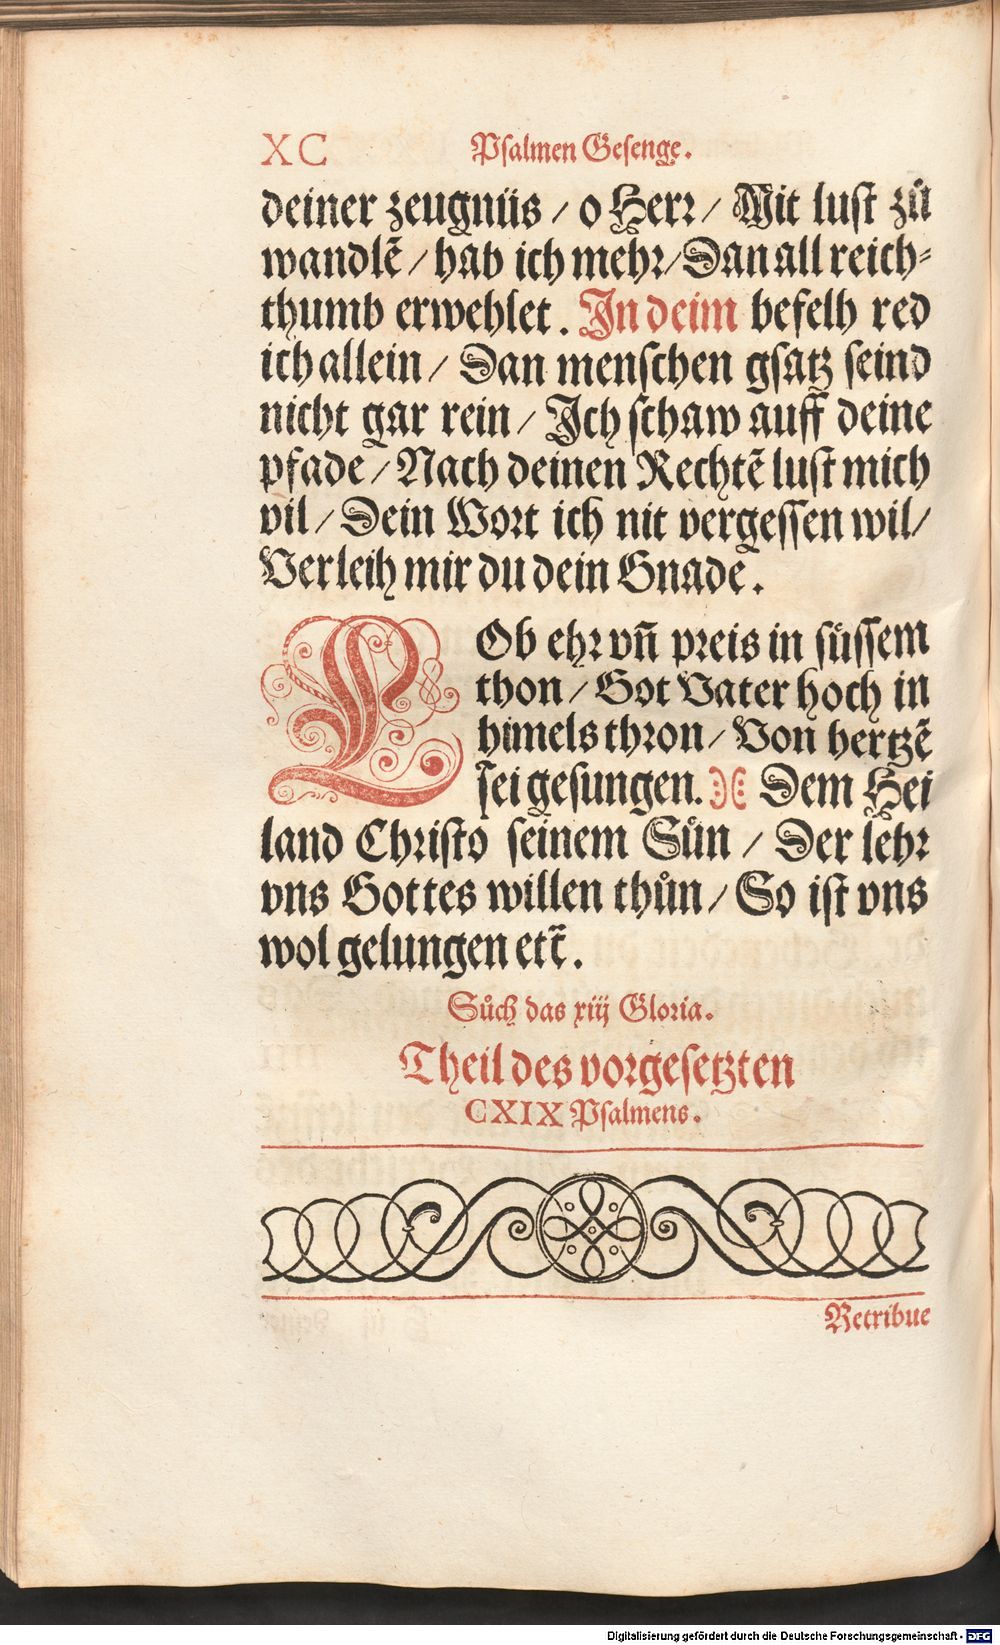 XC Psalmen Gesenge.
deiner zeugnüs / o Herr / Mit lust zů
wandlē / hab ich mehr / Dan all reich⸗
thumb erwehlet . In deim befelh red
ich allein / Dan menschen gsatz seind
nicht gar rein / Ich schaw auff deine
pfade / Nach deinen Rechtē lust mich
vil / Dein Wort ich nit vergessen wil /
Verleih mir du dein Gnade .
LOb ehr vn̄ preis in süssem
thon / Got Vater hoch in
himels thron / Von hertzē
sei gesungen. Dem Hei
land Christo seinem Sůn / Der lehr
vns Gottes willen thůn / So ist vns
wol gelungen etc̄ .
Sůch das xiij Gloria .
Theil des vorgesetzten
CXIX Psalmens .
Retribue
Digitalisierung gefördert durch die Deutsche Forschungsgemeinschaft - DFG